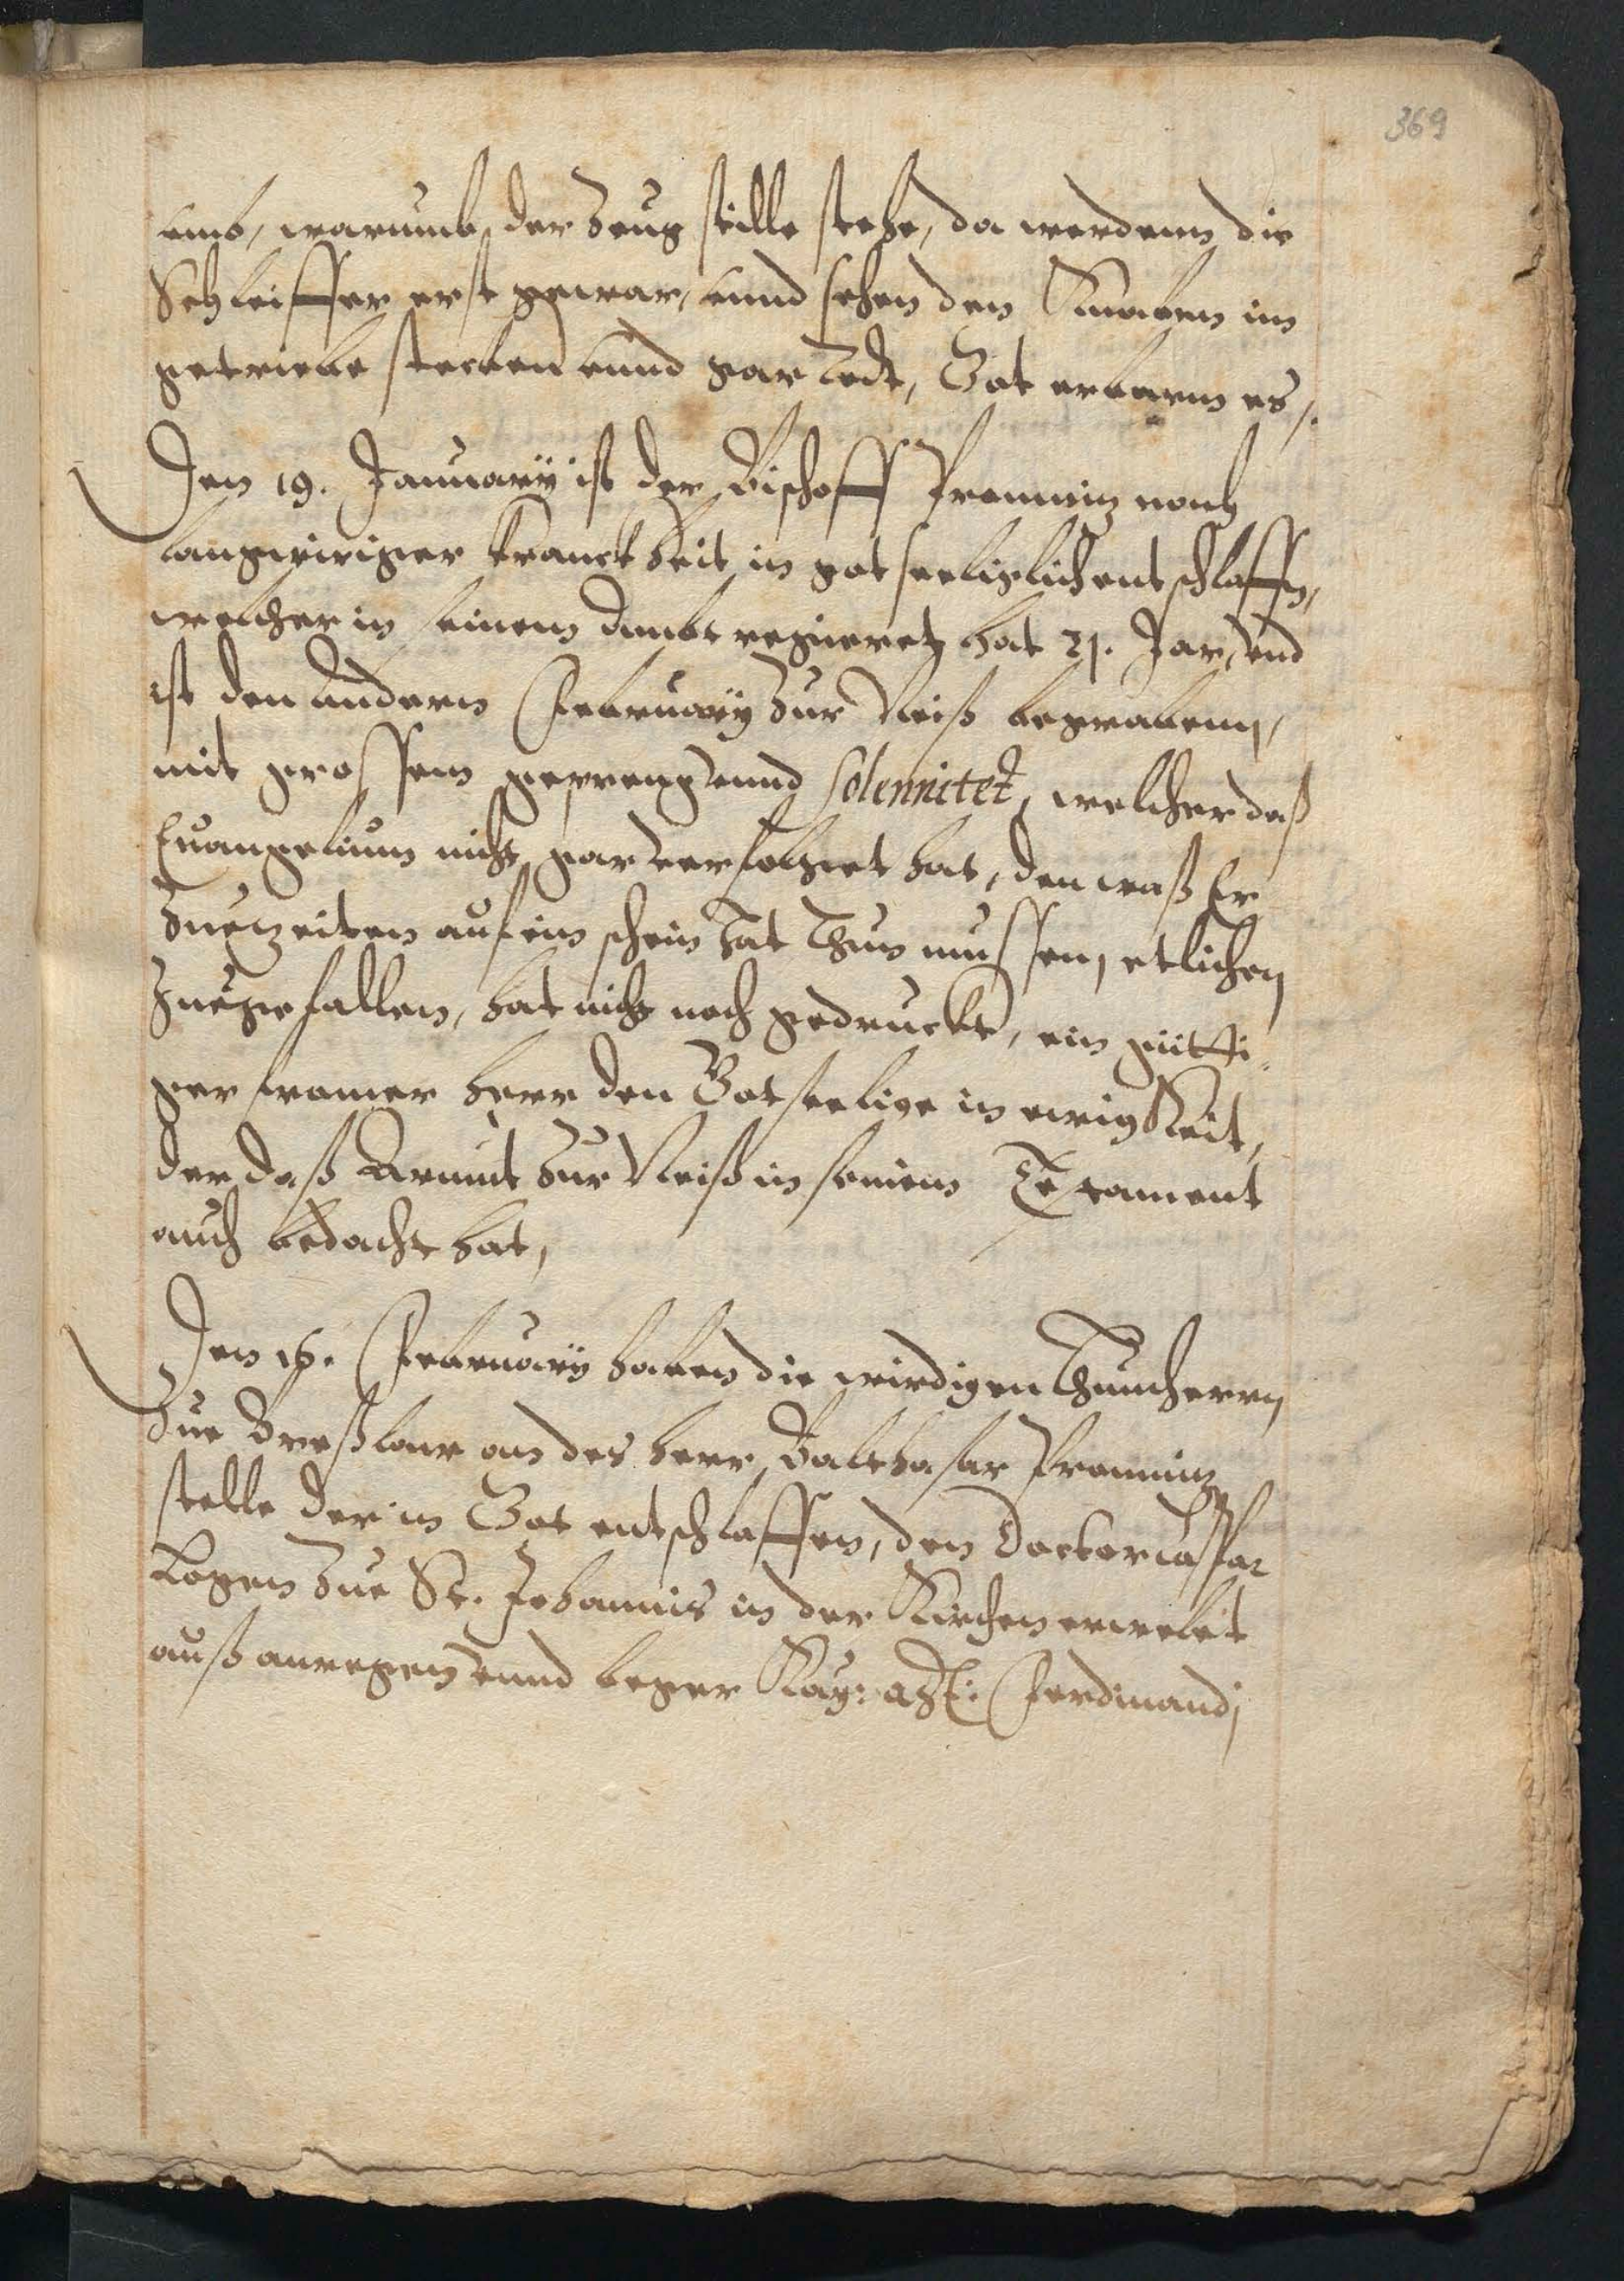 369
umb, warumb der Zeug stille stehe, da werdenn die
Schleiffer erst gewar, unnd sehen den Knaben im
getriebe stecken unnd gar Todt, Got erbarm es /.
Den 19. Januarÿ ist der Bischoff Promnitz nach
langwiriger kranckheit in got seeliglich entschlaffn,
welcher in seinem Ambt regieret hat 21. Jar, und
ist den andern Februarÿ Zur Neiß begraben,
mit grossem gepreng unnd Solennitet, welcher daß
Evangelium nicht gar verfolget hat, den waß Er
Zue Zeiten auf ein schein hat Thun mussen, etlichen
Zue gefallen, hat nicht noch gedruckt, ein gütti-
ger fromer herr den Got seelige in ewigkeit,
der daß Armut Zur Neiß in seinem Testament
auch bedacht hat,
Den 16. Februarÿ haben die wirdigen Thumherrn
Zue Breßlaw an des herr Balthasar Promnitz
stelle der in Got entschlaffen, den Doctor Caspar
Logen Zue St. Johannis in der Kirchen erwelet
auß anregen unnd beger Kay: Mt: Ferdinandj